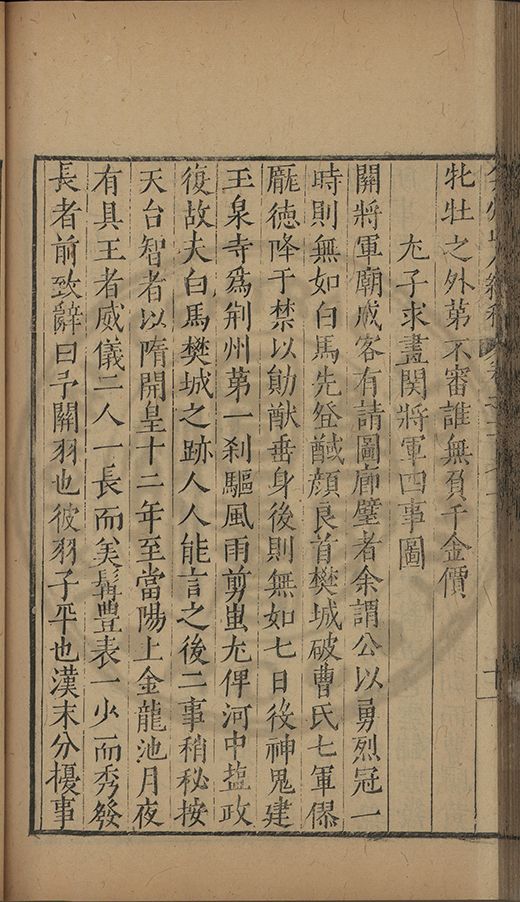 牝牡之外第不審誰無負千金價
尤子求畫関將軍四事圖
關將軍廟成客有請圖廊壁者余謂公以勇烈冠一
時則無如白馬先登馘顔良首樊城破曹氏七軍僇
龐德降于禁以勛猷垂身後則無如七日役神鬼建
玉泉寺爲荆州第一刹驅風雨剪蚩尤俾河中塩政
復故夫白馬樊城之跡人人能言之後二事稍秘按
天台智者以隋開皇十二年至當陽上金龍池月夜
有具王者威儀二人一長而美髯豐表一少而秀發
長者前致辭曰予關羽也彼羽子平也漢末分擾事